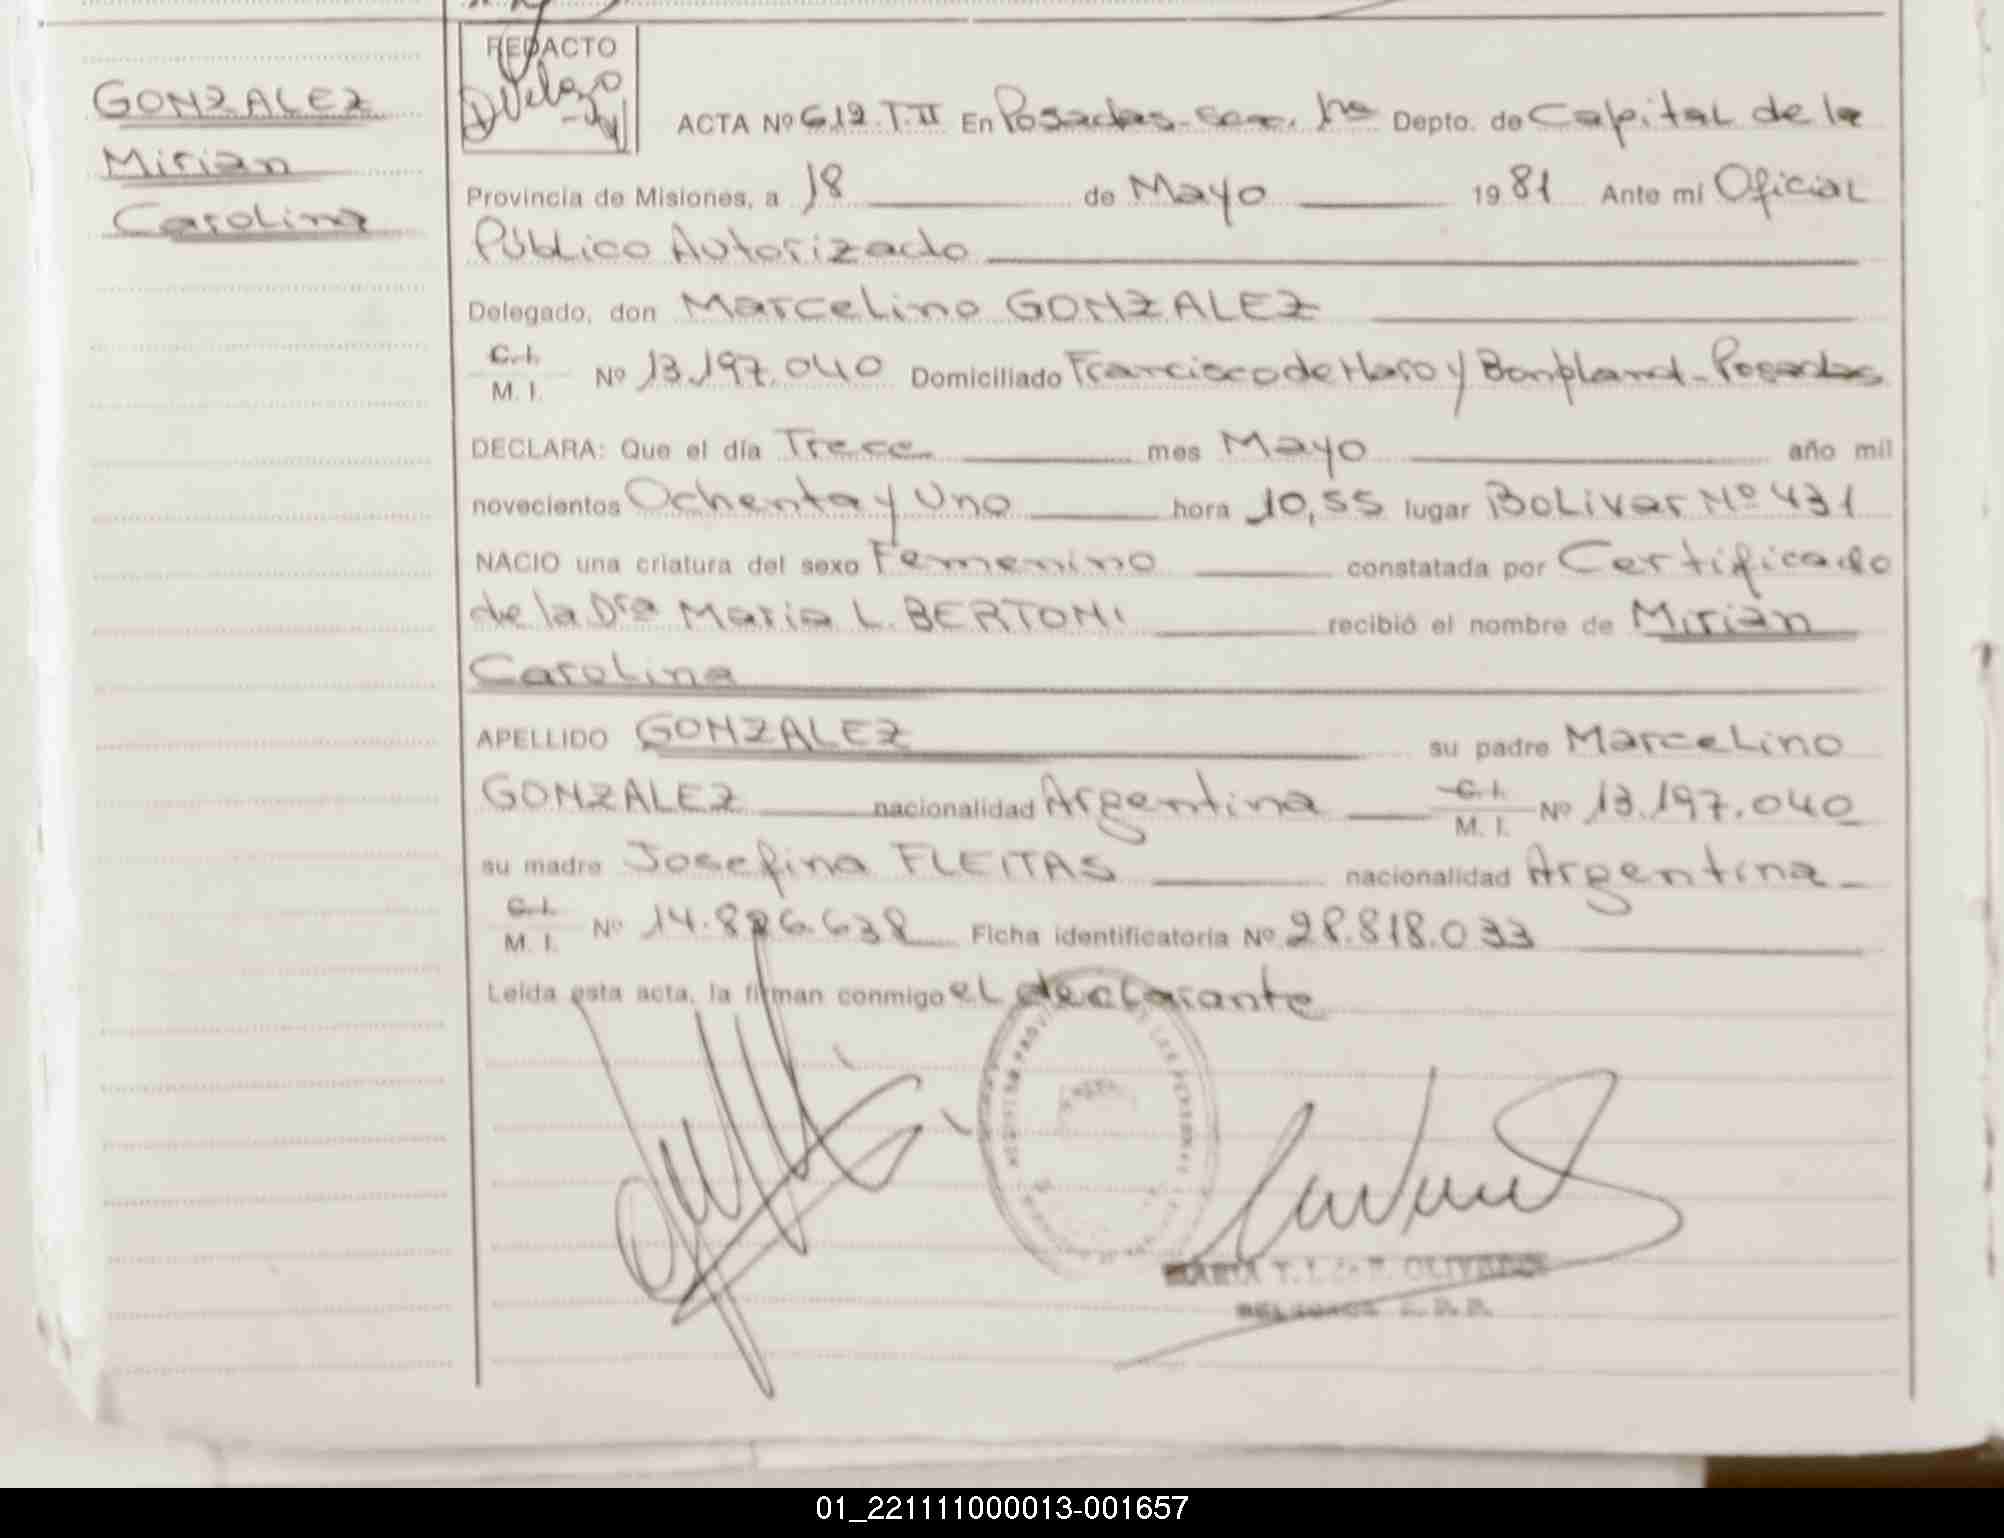 GONZALEZ
Mirian
Carolina
REDACTO
ACTA Nº 612 T.II En Posadas Secc. 1ra Depto. de Capital de la
Provincia de Misiones, a 18 de Mayo 1981 Ante mi Oficial
Público Autorizado
Delegado, don Marcelino GONZALEZ
C.I.
M. I. Nº 13.197.040 Domiciliado Francisco de Haro y Bonpland - Posadas
DECLARA: Que el día Trece mes Mayo año mil
novecientos Ochenta y Uno hora 10,55 lugar Bolivar Nº 431
NACIO una criatura del sexo Femenino constatada por Certificado
de la Dra Maria L. BERTONI recibió el nombre de Mirian
Carolina
APELLIDO GONZALEZ su padre Marcelino
GONZALEZ nacionalidad Argentina C.I. M. I. Nº 13.197.040
su madre Josefina FLEITAS nacionalidad Argentina
C.I.
M. I. Nº 14.826.638 Ficha identificatoria Nº 28.818.033
Leída esta acta, la firman conmigo el declarante
01_221111000013-001657